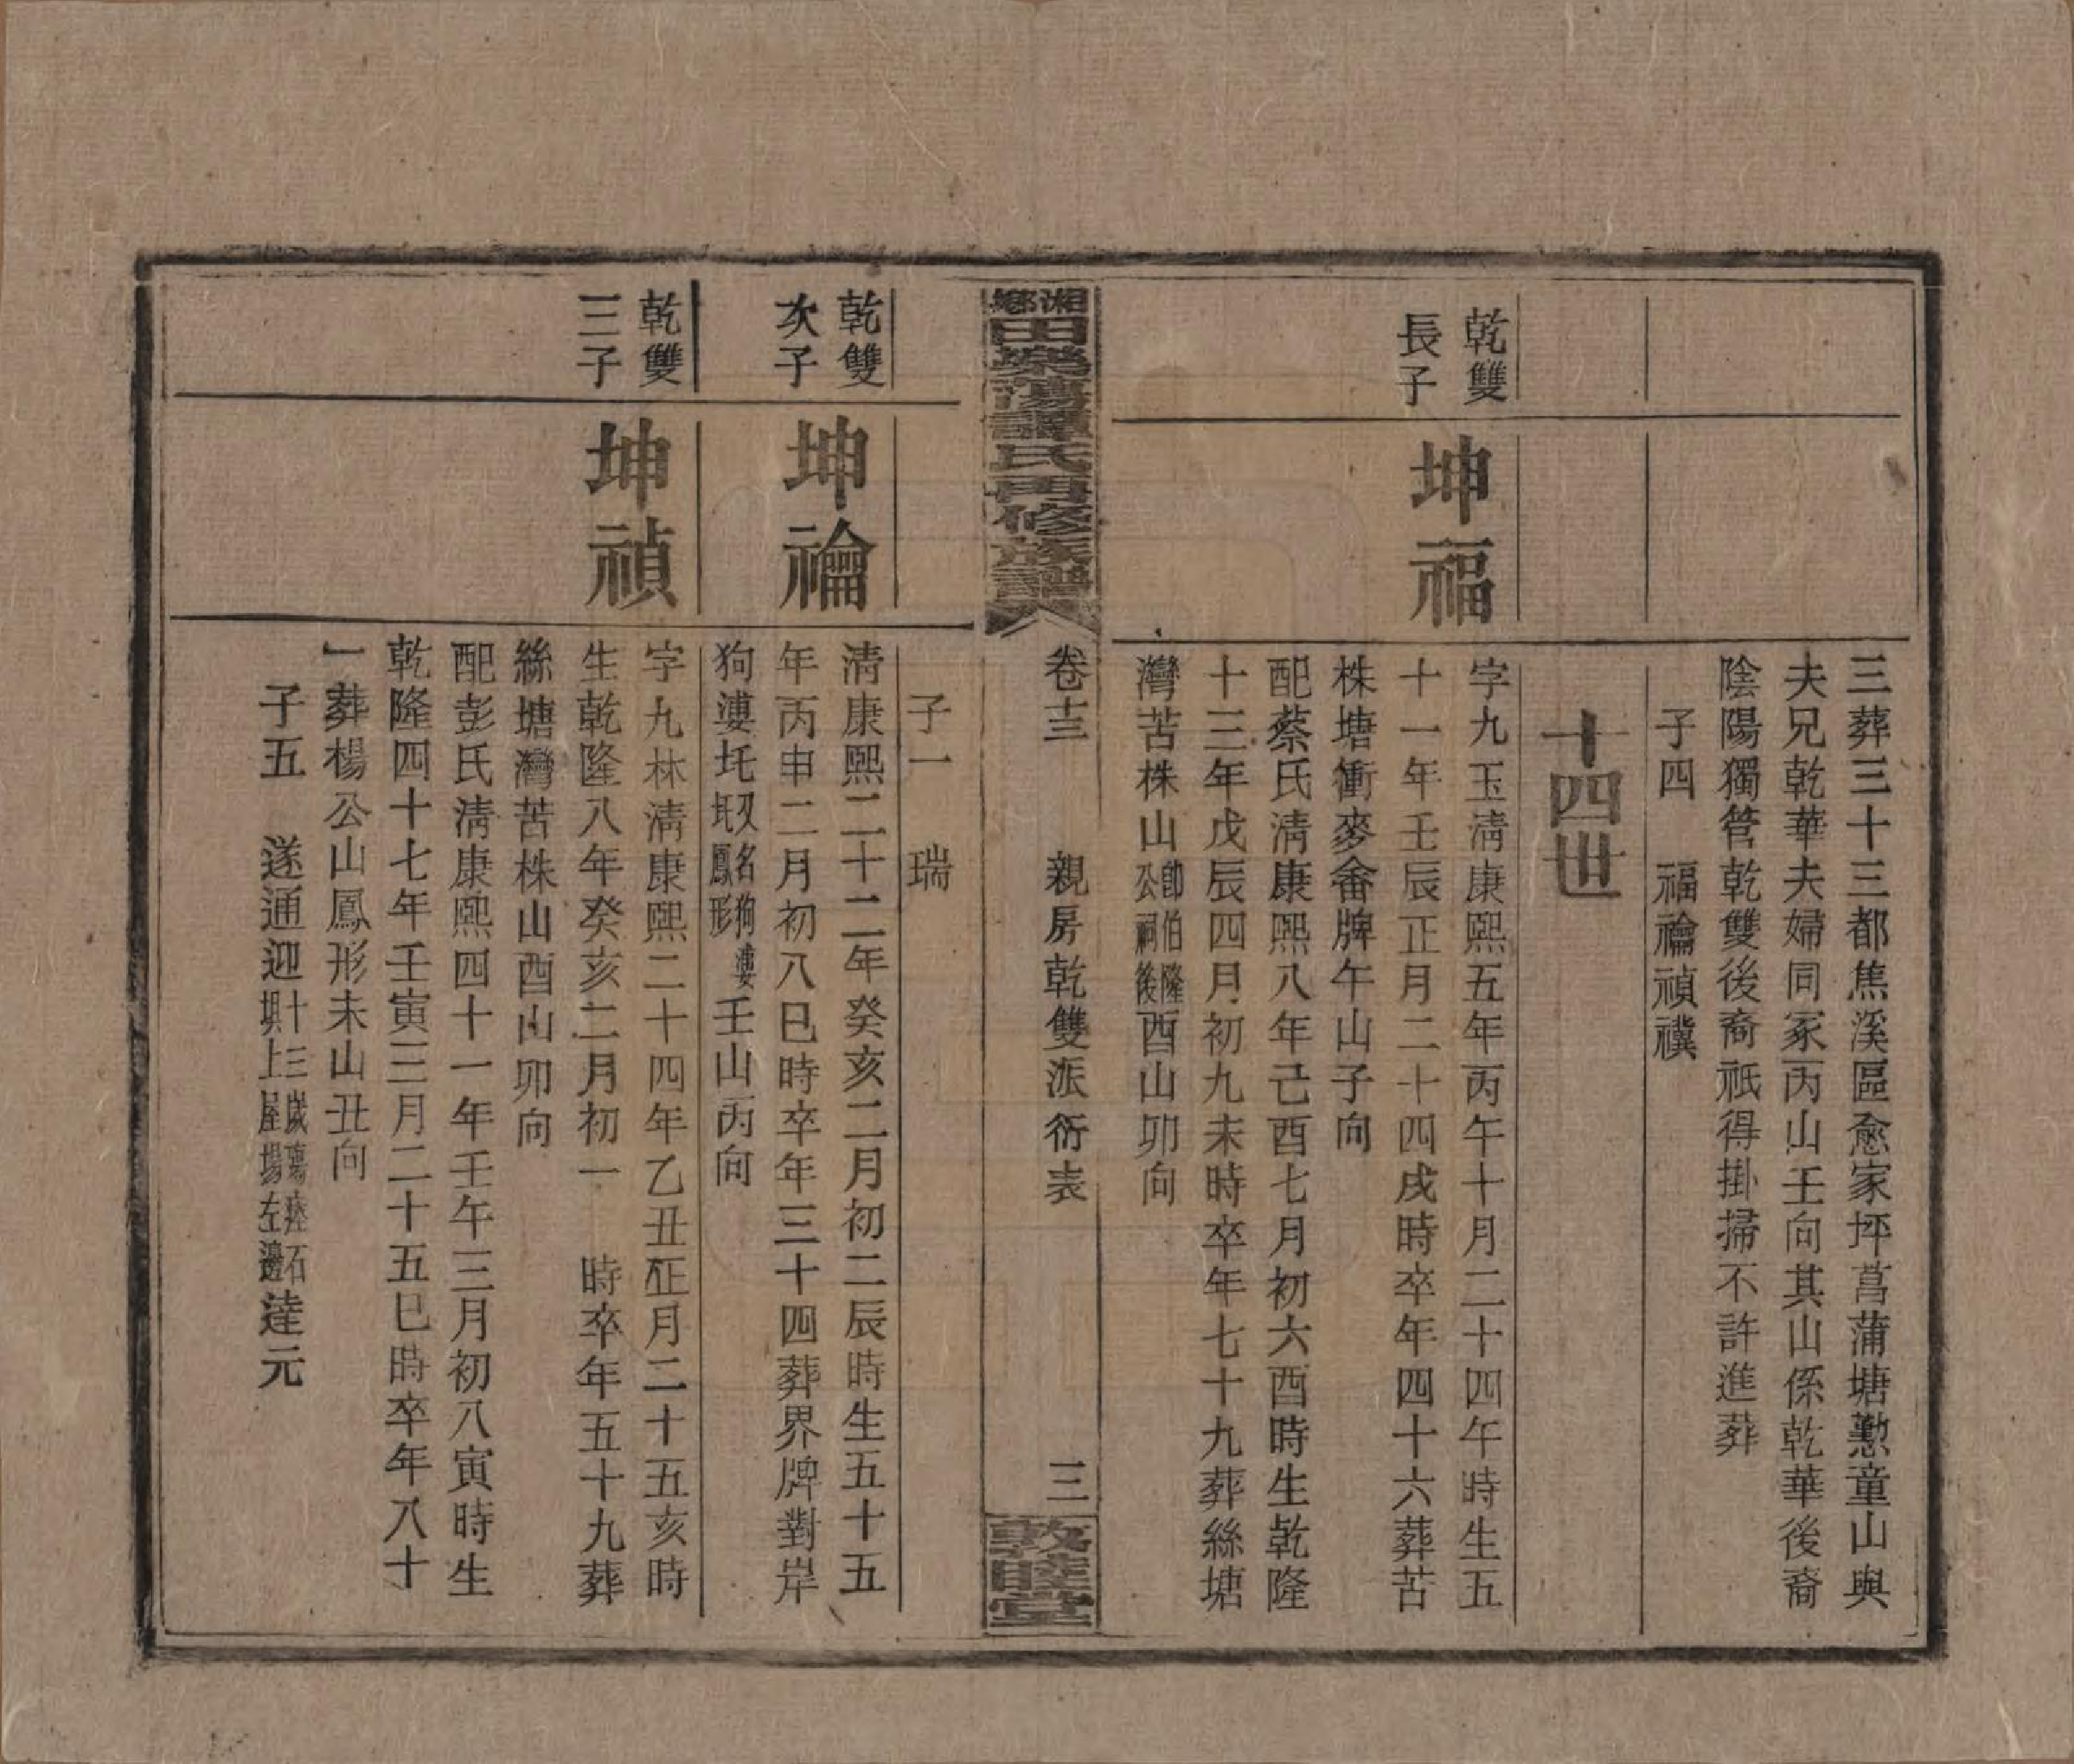 三葬三十三都焦溪區愈家坪菖蒲塘懃童山與
夫兄乾華夫婦同冢丙山壬向其山係乾華後裔
陰陽獨管乾雙後裔祇得掛掃不許進葬
子四　福禴禎禩
十四世
乾雙
長子
坤福
字九玉淸康熙五年丙午十月二十四午時生五
十一年壬辰正月二十四戌時卒年四十六葬苦
株塘衝麥畬牌午山子向
配蔡氏淸康熙八年己酉七月初六酉時生乾隆
十三年戊辰四月初九未時卒年七十九葬絲塘
灣苦株山卽伯隆公祠後酉山卯向
湘鄉田樂蕩譚氏再修族譜
卷十三　親房乾雙派衍表　三
敦睦堂
子一　瑞
乾雙
次子
坤禴
淸康熙二十二年癸亥二月初二辰時生五十五
年丙申二月初八巳時卒年三十四葬界牌對岸
狗漊圫又名狗漊圫鳳形壬山丙向
乾雙
三子
坤禎
字九林淸康熙二十四年乙丑正月二十五亥時
生乾隆八年癸亥二月初一　時卒年五十九葬
絲塘灣苦株山酉山卯向
配彭氏淸康熙四十一年壬午三月初八寅時生
乾隆四十七年壬寅三月二十五巳時卒年八十
一葬楊公山鳳形未山丑向
子五　遂通迎十三歲殤瘞石圫上屋場左邊達元